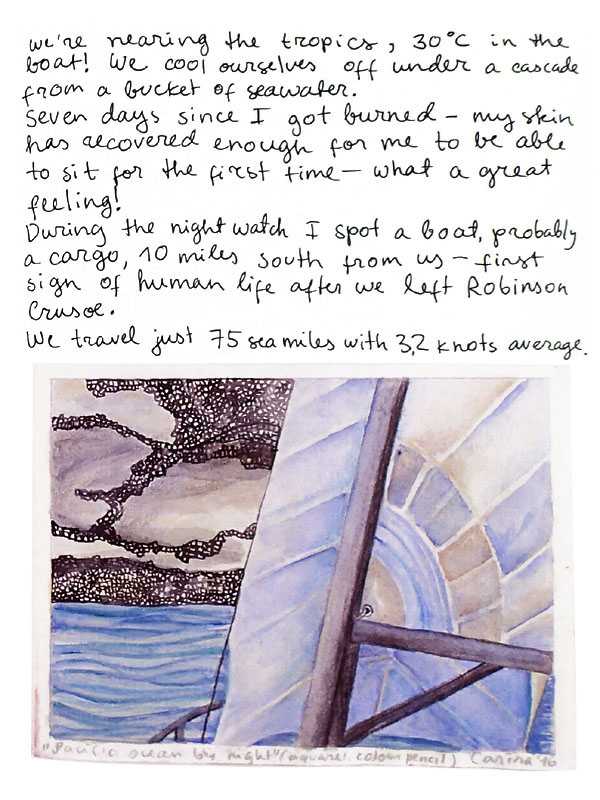 we're nearing the tropics, 30°C in the
boat! We cool ourselves off under a cascade
from a bucket of seawater.
Seven days since I got burned – my skin
has recovered enough for me to be able
to sit for the first time – what a great
feeling!
During the night watch I spot a boat, probably
a cargo, 10 miles south from us – first
sign of human life after we left Robinson
Crusoe.
We travel just 75 sea miles with 3,2 knots average.
"Pacific ocean by night" (aquarel, colour pencil) Carina '16